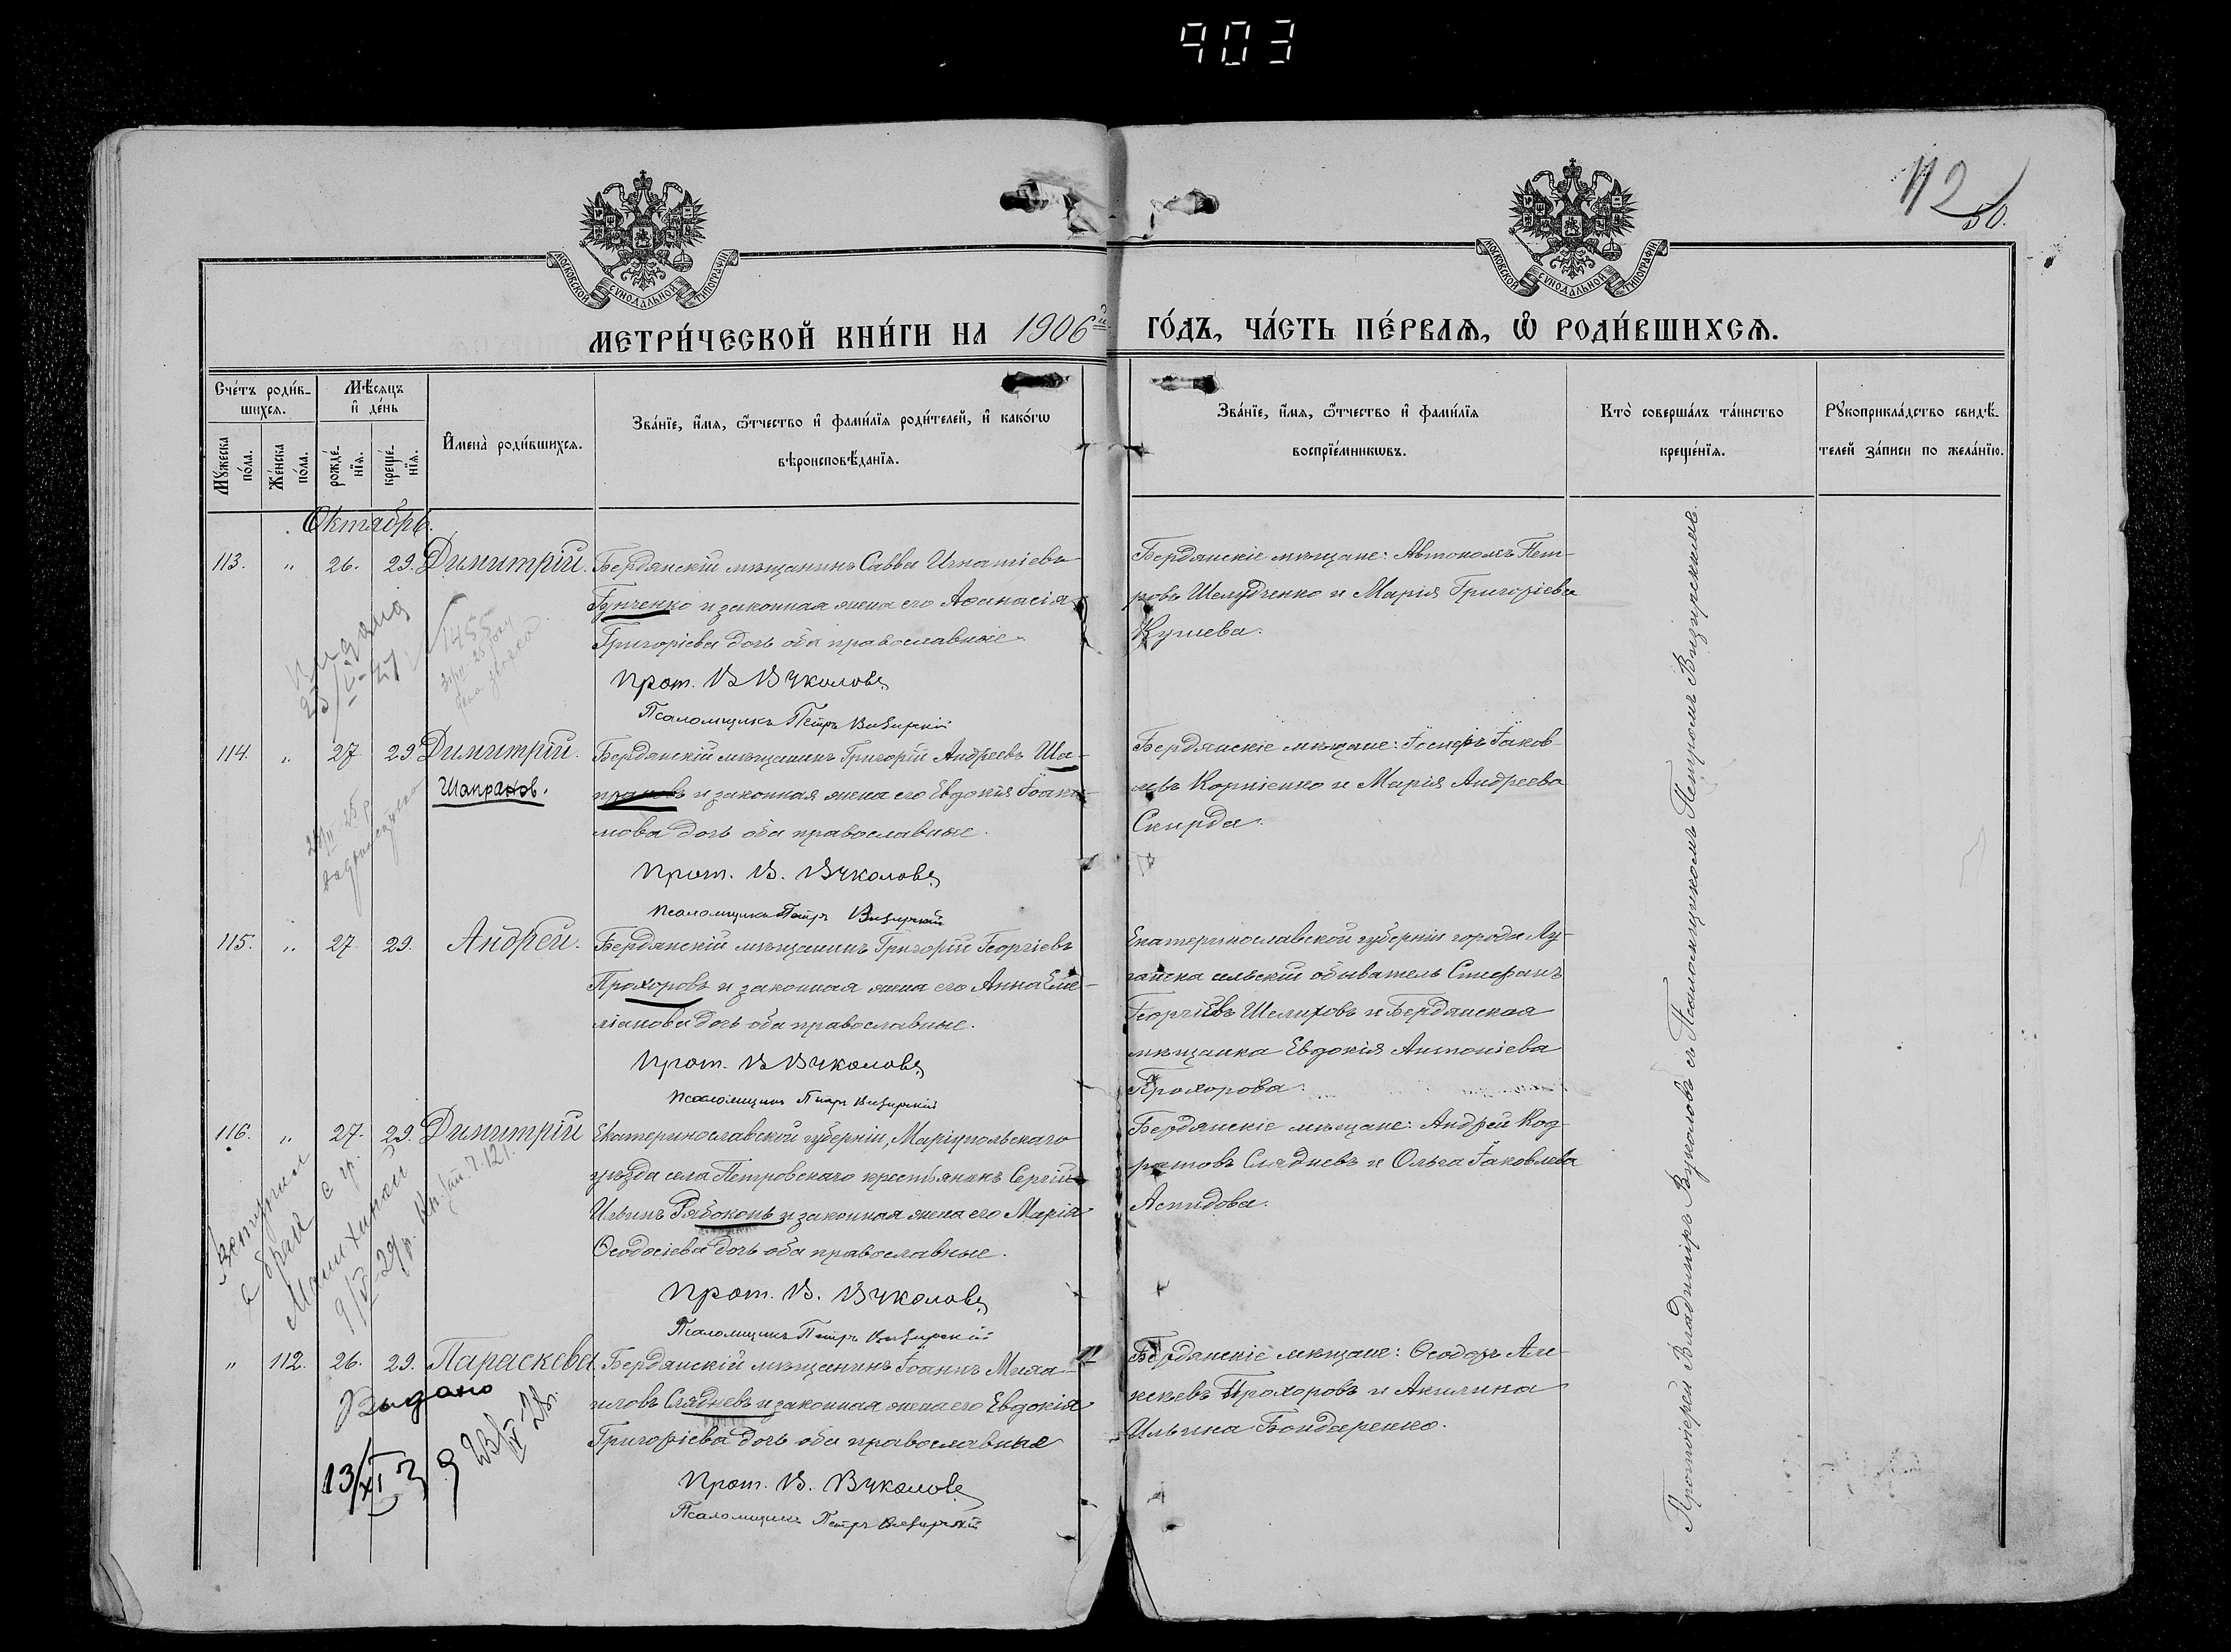 903
112
50.
МОСКОВСКОЙ СѴНОДАЛЬНОЙ ТИПОГРАФІИ
МОСКОВСКОЙ СѴНОДАЛЬНОЙ ТИПОГРАФІИ
МЕТРИ́ЧЕСКОЙ КНИ́ГИ НА 1906й ГО́ДЪ, ЧА́СТЬ ПЕ́РВАѦ, Ѡ҆ РОДИ́ВШИХСѦ.
Сче́тъ роди́в-
шихсѧ.
Мꙋ́жеска по́ла.
Же́нска по́ла.
Мѣ́сѧцъ
и҆ де́нь
рожде́-
нїѧ.
креще́-
нїѧ.
И҆мена̀ роди́вшихсѧ.
Зва́нїе, и҆́мѧ, ѻ҆́тчество и҆ фами́лїѧ роди́телей, и҆ како́гѡ
вѣроисповѣ́данїѧ.
Зва́нїе, и҆́мѧ, ѻ҆́тчество и҆ фами́лїѧ
воспрїе́мникѡвъ.
Кто̀ соверша́лъ та́инство
креще́нїѧ.
Рꙋкоприкла́дство свидѣ́-
телей за́писи по жела́нїю.
Октябрь.
113. " 26. 29. Димитрій.
Бердянскій мѣщанинъ Савва Игнатіевъ
Гунченко и законная жена его Афанасія
Григоріева дочь оба православные.
Прот. В Вуколовъ
Псаломщикъ Петръ Визирскій
Бердянскіе мѣщане: Автономъ Пет-
ровъ Шелудченко и Марія Григоріева
Кушева.
Выдано
23/V-27
1455
114. " 27 29 Димитрій.
Шапранов.
Бердянскій мѣщанинъ Григорій Андреевъ Ша-
прановъ и законная жена его Евдокія Іоаки-
мова дочь оба православные.
Прот. В. Вуколовъ
Псаломщикъ Петръ Визирскій
Бердянскіе мѣщане: Іосифъ Іаков-
левъ Корніенко и Марія Андреева
Скирда.
115. " 27. 29. Андрей.
Бердянскій мѣщанинъ Григорій Георгіевъ
Прохоровъ и законная жена его Анна Еме-
ліанова дочь оба православные.
Прот. В Вуколовъ
Псаломщикъ Петръ Визирскій
Екатеринославской губерніи города Лу-
ганска сельскій обыватель Стефанъ
Георгіевъ Шелиховъ и Бердянская
мѣщанка Евдокія Антоніева
Прохорова.
116. " 27. 29. Димитрій
Екатеринославской губерніи, Маріупольскаго
уѣзда села Петровскаго крестьянинъ Сергій
Ильинъ Рябоконь и законная жена его Марія
Ѳеодосіева дочь оба православные.
Прот. В. Вуколовъ
Псаломщикъ Петръ Визирскій
Бердянскіе мѣщане: Андрей Код-
ратовъ Сляднев и Ольга Іаковлева
Аспидова.
Вступил
в брак с гр.
" 112. 26. 29. Параскева.
Бердянскій мѣщанинъ Іоаннъ Миха-
иловъ Слядневъ и законная жена его Евдокія
Григоріева дочь оба православные
Прот. В. Вуколовъ
Псаломщикъ Петръ Визирскій
Бердянскіе мѣщане: Ѳеодоръ Але-
ксѣевъ Прохоровъ и Акилина
Ильина Бондаренко.
Выдано
13/XI
Протоіерей Владиміръ Вуколовъ съ Псаломщикомъ Петромъ Визирскимъ.